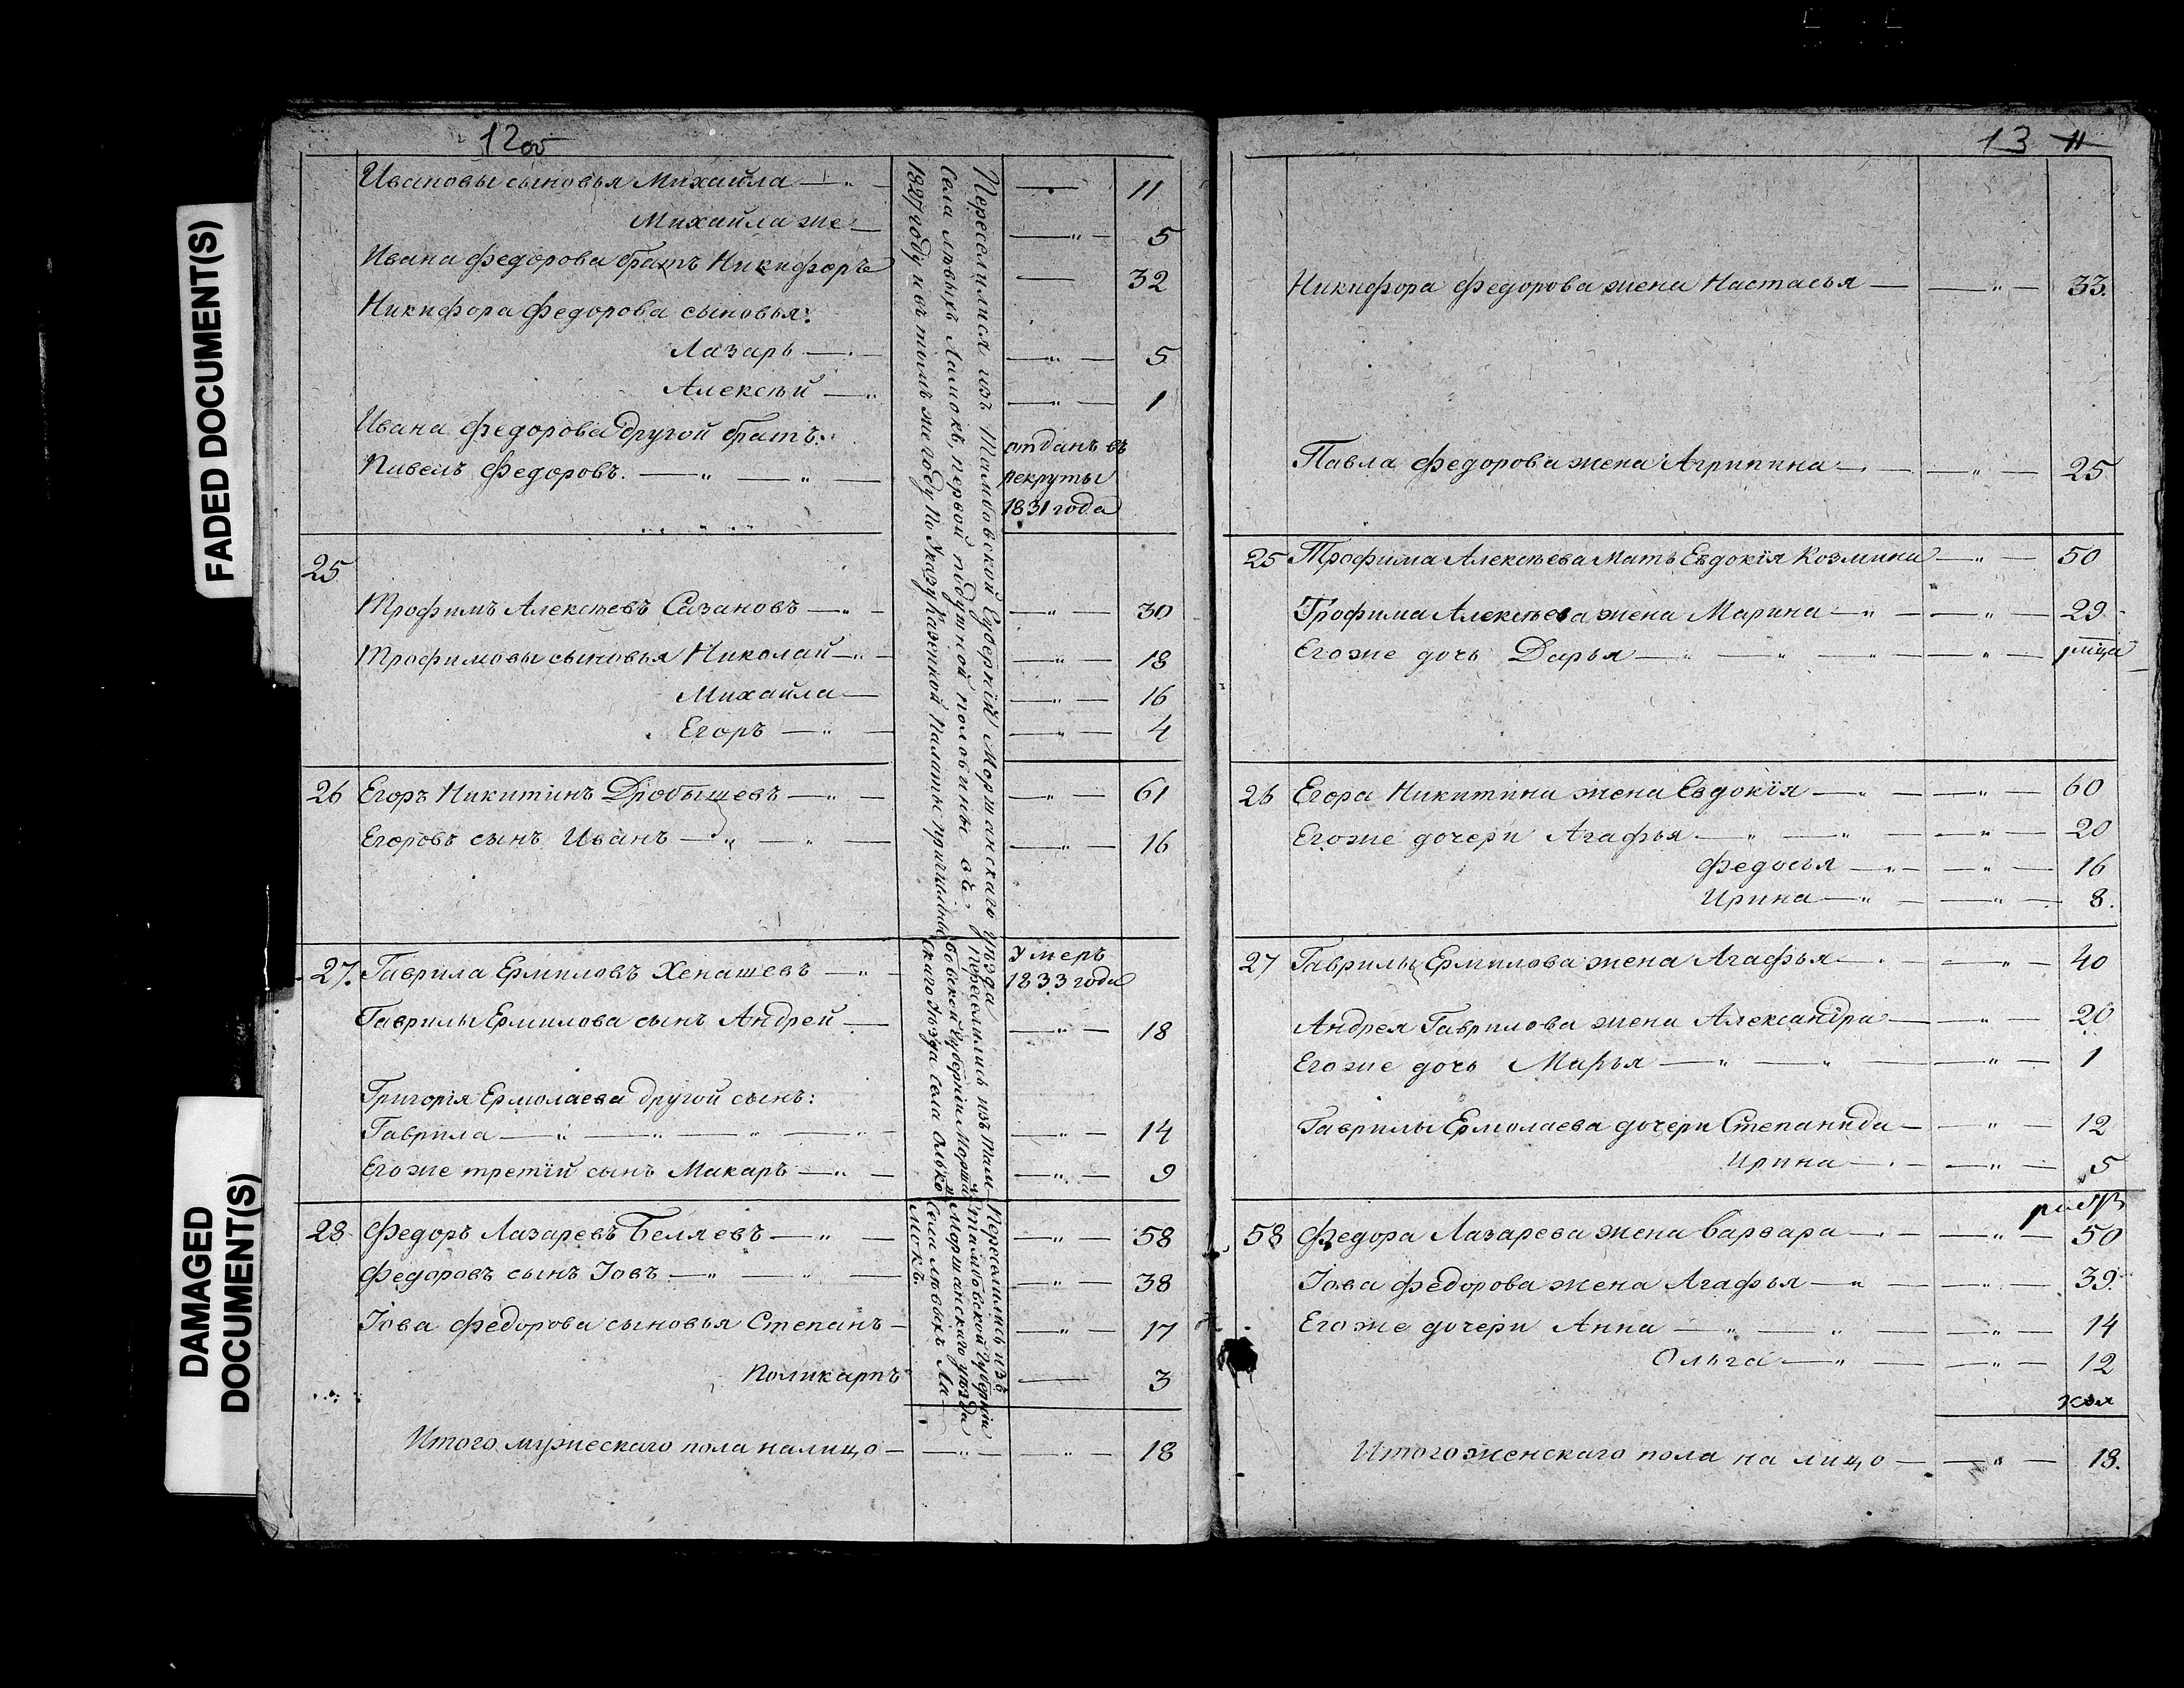 FADED DOCUMENT(S)
DAMAGED
DOCUMENT(S)
12об
Ивановы сыновья Михайла — 11
Михайла же — 5
Ивана Федорова братъ Никифоръ — 32
Никифора Федорова сыновья:
Лазарь — 5
Алексѣй — 1
Ивана Федорова другой братъ:
Павелъ Федоровъ. — отданъ въ
рекруты
1831 года
25
Трофимъ Алексѣевъ Сазановъ — 30
Трофимовы сыновья Николай — 18
Михайла — 16
Егоръ — 4
26 Егоръ Никитинъ Дробышевъ — 61
Егоровъ сынъ Иванъ — 16
27. Гаврила Ермиловъ Хенашевъ — Умеръ
1833 года
Гаврилы Ермилова сынъ Андрей — 18
Григорія Ермолаева другой сынъ:
Гаврила — 14
Его же третій сынъ Макаръ — 9
28 Федоръ Лазаревъ Беляевъ — 58
Федоровъ сынъ Іовъ — 38
Іова Федорова сыновья Степанъ — 17
Поликарпъ — 3
Итого мужескаго пола налицо — 18
Переселился изъ Тамбовской Губерніи Моршанскаго уѣзда
села лѣвыхъ Ламокъ, первой подушной половинѣ въ
1827 году и въ томъ же году по Указу Казенной Палаты причислены
Переселились изъ Там
бовской Губерніи Морша
скаго уѣзда села
Переселились изъ
Тамбовской губерніи
Моршанскаго уѣзда
Села лѣвыхъ Ла
мокъ.
13 11
Никифора Федорова жена Настасья — 33.
Павла Федорова жена Агрипина — 25
25 Трофима Алексѣева Мать Евдокія Козмина — 50
Трофима Алексѣева жена Марина — 29
Его же дочь Дарья —
26 Егора Никитина жена Евдокія — 60
Его же дочери Агафья — 20
Федосья — 16
Ирина — 8.
27 Гаврилы Ермилова жена Агафья — 40
Андрея Гаврилова жена Александра — 20
Его же дочь Марья — 1
Гаврилы Ермолаева дочери Степанида — 12
Ирина — 5
58 Федора Лазарева жена Варвара — 50
Іова Федорова жена Агафья — 39.
Его же дочери Анна — 14
Ольга — 12
Итого женскаго пола на лицо — 18.